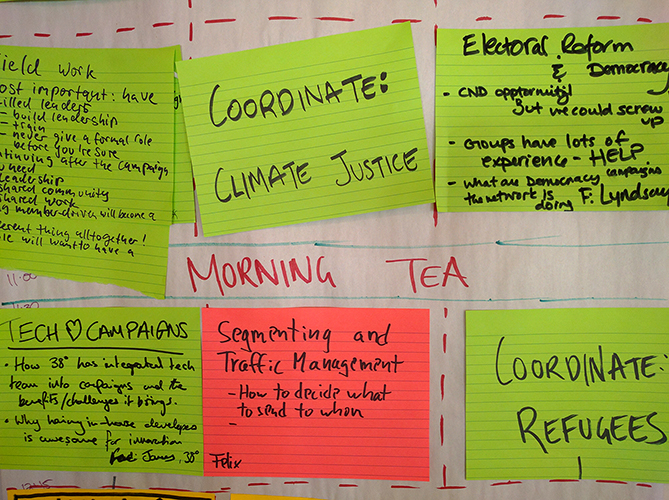 ield work
ost important: have
illed leaders
- build leadership
- train
- never give a formal role
before you're sure
ntinuing after the campaign
need
eadership
shared community
shared work
member-driven will become a
erent thing alltogether!
le will want to have a
COORDINATE:
CLIMATE JUSTICE
Electoral Reform
& Democracy
- CND opportunity
but we could screw
up
- Groups have lots of
experience - HELP
- What are Democracy campaigns
the network is
doing F: Lyndsay
11:00
MORNING TEA
11:30
TECH ♡ CAMPAIGNS
• How 38° has integrated tech
team into campaigns and the
benefits/challenges it brings.
• Why having in-house developers
is awesome for innovation
James, 38°
Segmenting and
Traffic Management
- How to decide what
to send to whom
-
Felix
COORDINATE:
REFUGEES
12:15